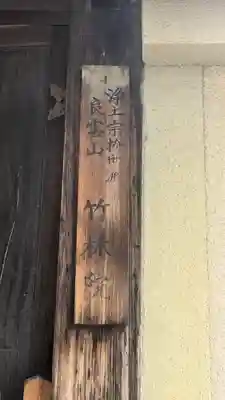 浄土宗
良雲山
竹林院